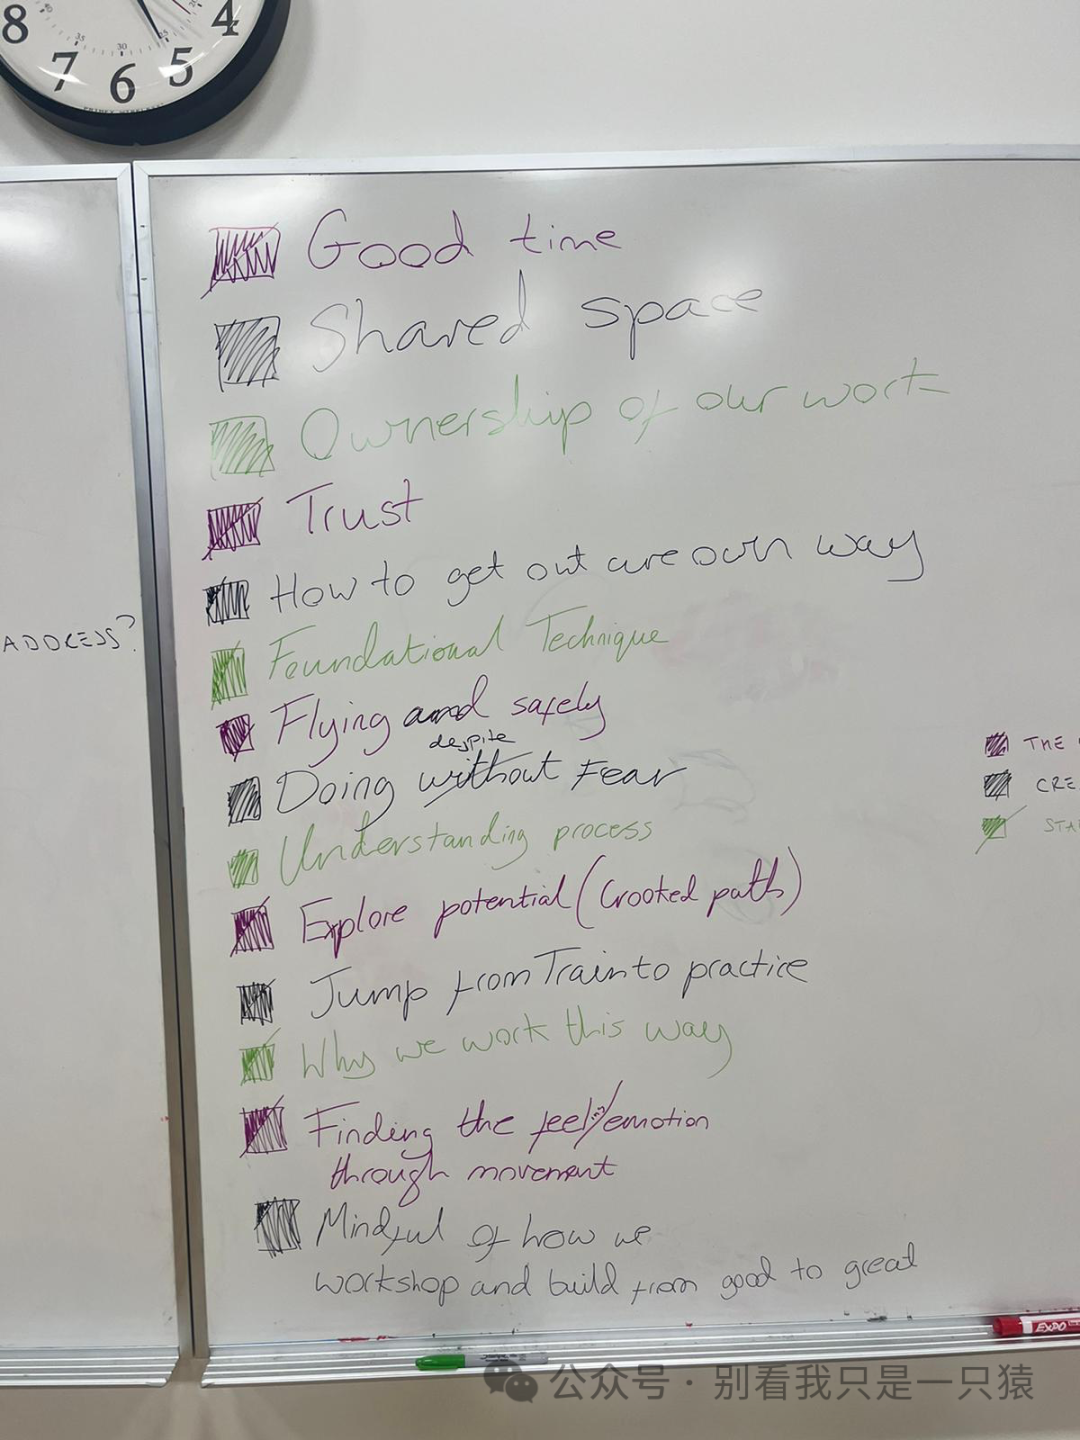 8
7
6
5
4
40
35
30
25
Good time
Shared space
Ownership of our work
Trust
How to get out are own way
Foundational Technique
Flying and safely
despite
Doing without Fear
Understanding process
Explore potential (Crooked path)
Jump from Train to practice
Why we work this way
Finding the feeling/emotion
through movement
Mindful of how we
workshop and build from good to great
ADDRESS?
THE
CRE
STA
EXPO
公众号 · 别看我只是一只猿